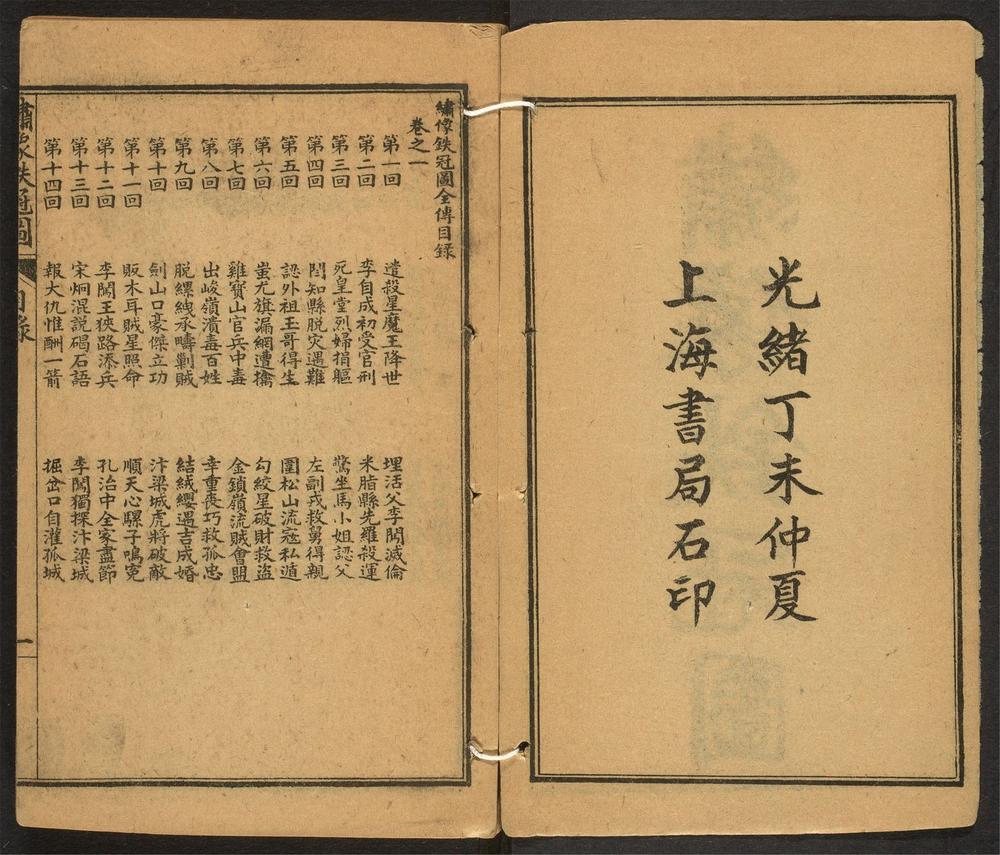 光緒丁未仲夏
上海書局石印
繡像鉄冠圖全傳目錄
卷之一
第一回 遣殺星魔王降世 埋活父李闖滅倫
第二回 李自成初受官刑 米脂縣先羅殺運
第三回 死皇堂烈婦捐軀 驚坐馬小姐認父
第四回 閆知縣脱灾遇難 左副戎救舅得親
第五回 認外祖王哥得生 圍松山流寇私遁
第六回 蚩尤旗漏網遭擒 勾絞星破財救盜
第七回 雞寶山官兵中毒 金鎖嶺流賊會盟
第八回 出峻嶺潰毒百姓 幸重喪巧救孤忠
第九回 脱縲絏承疇剿賊 結絨纓遇吉成婚
第十回 劍山口豪傑立功 汴梁城虎將破敵
第十一回 販木耳賊星照命 順天心騾子鳴寃
第十二回 李闖王狹路添兵 孔治中全家盡節
第十三回 宋炯混説碣石語 李闖獨探汴梁城
第十四回 報大仇惟酬一箭 掘岔口自灌孤城
繡像鉄冠圖 目錄 一